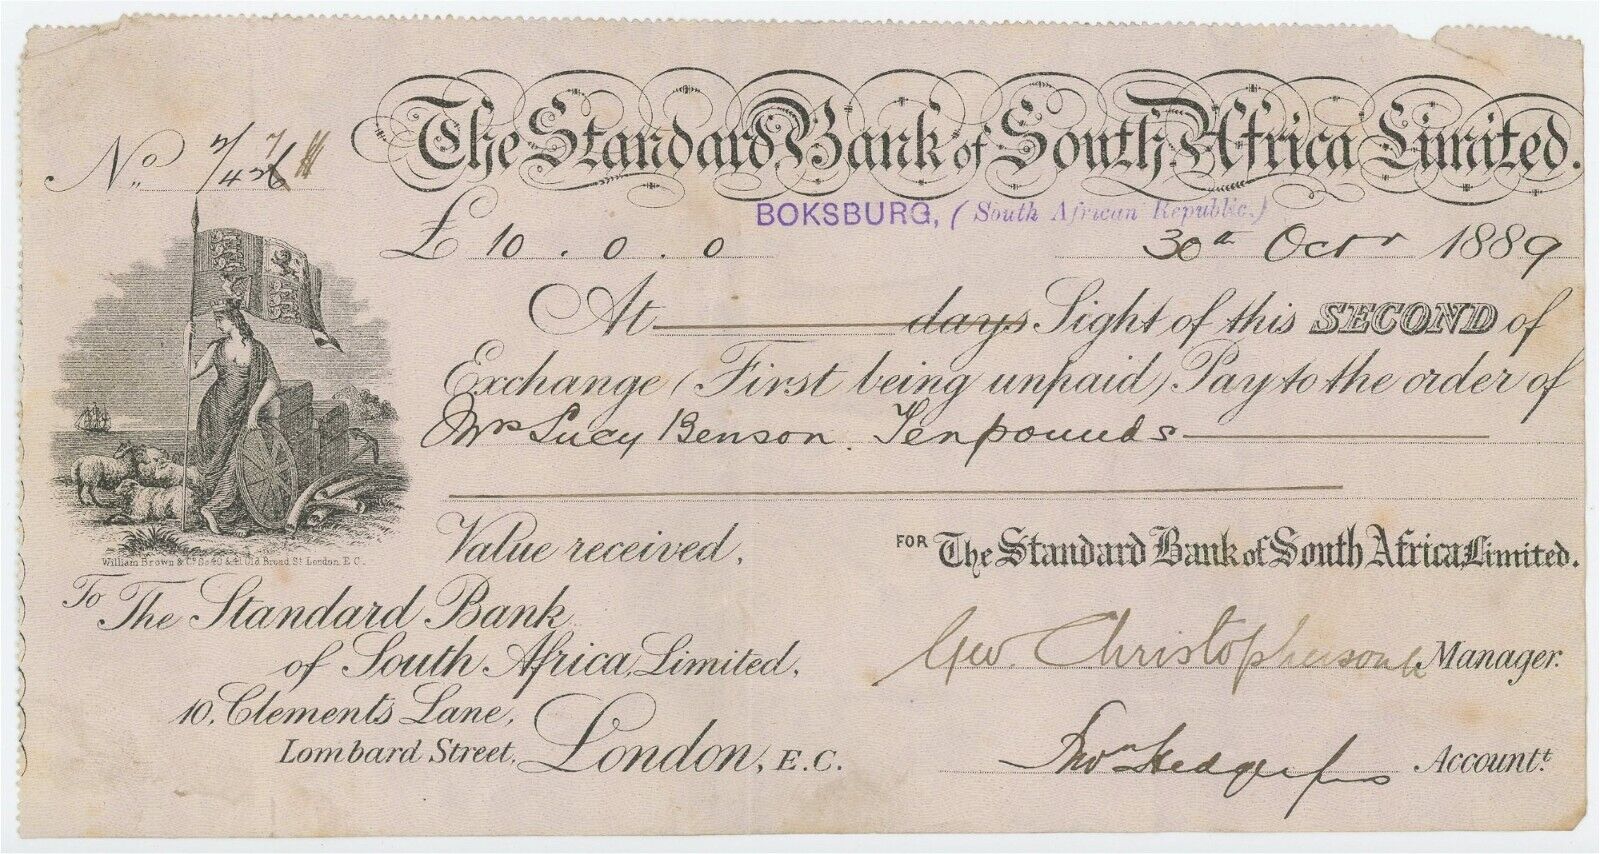 The Standard Bank of South Africa Limited.
No.
BOKSBURG, (South African Republic.)
£ 10 . 0 . 0 30th Octr 1889
At days Sight of this SECOND of
Exchange (First being unpaid) Pay to the order of
Mrs Lucy Benson. Ten pounds
Value received.
FOR The Standard Bank of South Africa Limited.
William Brown & Co. No 40 & 41 Old Broad St London. E.C.
To The Standard Bank
of South Africa, Limited.
10, Clements Lane,
Lombard Street. London, E.C.
Geo. Christopherson Manager.
Accountt.